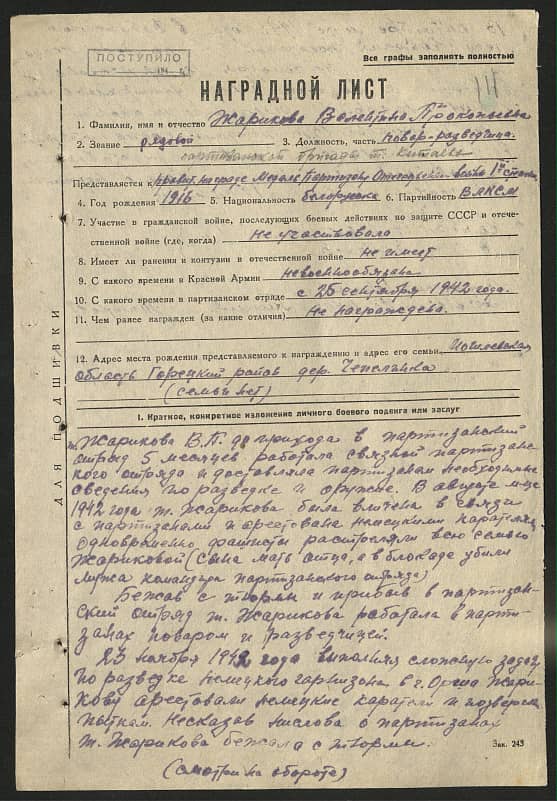 ПОСТУПИЛО
Все графы заполнять полностью
НАГРАДНОЙ ЛИСТ
1. Фамилия, имя и отчество Жарикова Валентина Прокопьевна
2. Звание рядовой 3. Должность, часть повар-разведчица.
партизанской бригады т.
Представляется к правит. награде Медаль Партизану Отечественной войны 1й степени
4. Год рождения 1916 5. Национальность белоруска 6. Партийность ВЛКСМ
7. Участие в гражданской войне, последующих боевых действиях по защите СССР и отече-
ственной войне (где, когда) не участвовала
8. Имеет ли ранения и контузии в отечественной войне не имеет
9. С какого времени в Красной Армии невоеннообязана
10. С какого времени в партизанском отряде с 25 сентября 1942 года.
11. Чем ранее награжден (за какие отличия) не награждена.
12. Адрес места рождения представляемого к награждению и адрес его семьи
область Горецкий район дер.
(семьи нет)
ДЛЯ ПОДШИВКИ
I. Краткое, конкретное изложение личного боевого подвига или заслуг
т. Жарикова В.П. до прихода в партизанский
отряд 5 месяцев работала связной партизанс-
кого отряда и доставляла партизанам необходимые
сведения по разведке и оружие. В августе м-це
1942 года т. Жарикова была уличена в связи
с партизанами и арестована немецкими карателями
Одновременно фашисты расстреляли всю семью
Жариковой (сына мать отца, а в блокаде убили
мужа командира партизанского отряда)
Бежав с тюрьмы и прибыв в партизан-
ский отряд т. Жарикова работала в парти-
занах поваром и разведчицей.
23 ноября 1942 года выполняя сложную задачу
по разведке немецкого гарнизона в г. Орша Жари-
кову арестовали немецкие каратели и подвергли
пыткам. Несказав ни слова о партизанах
т. Жарикова бежала с тюрьмы.
Зак. 243
(смотри на обороте)